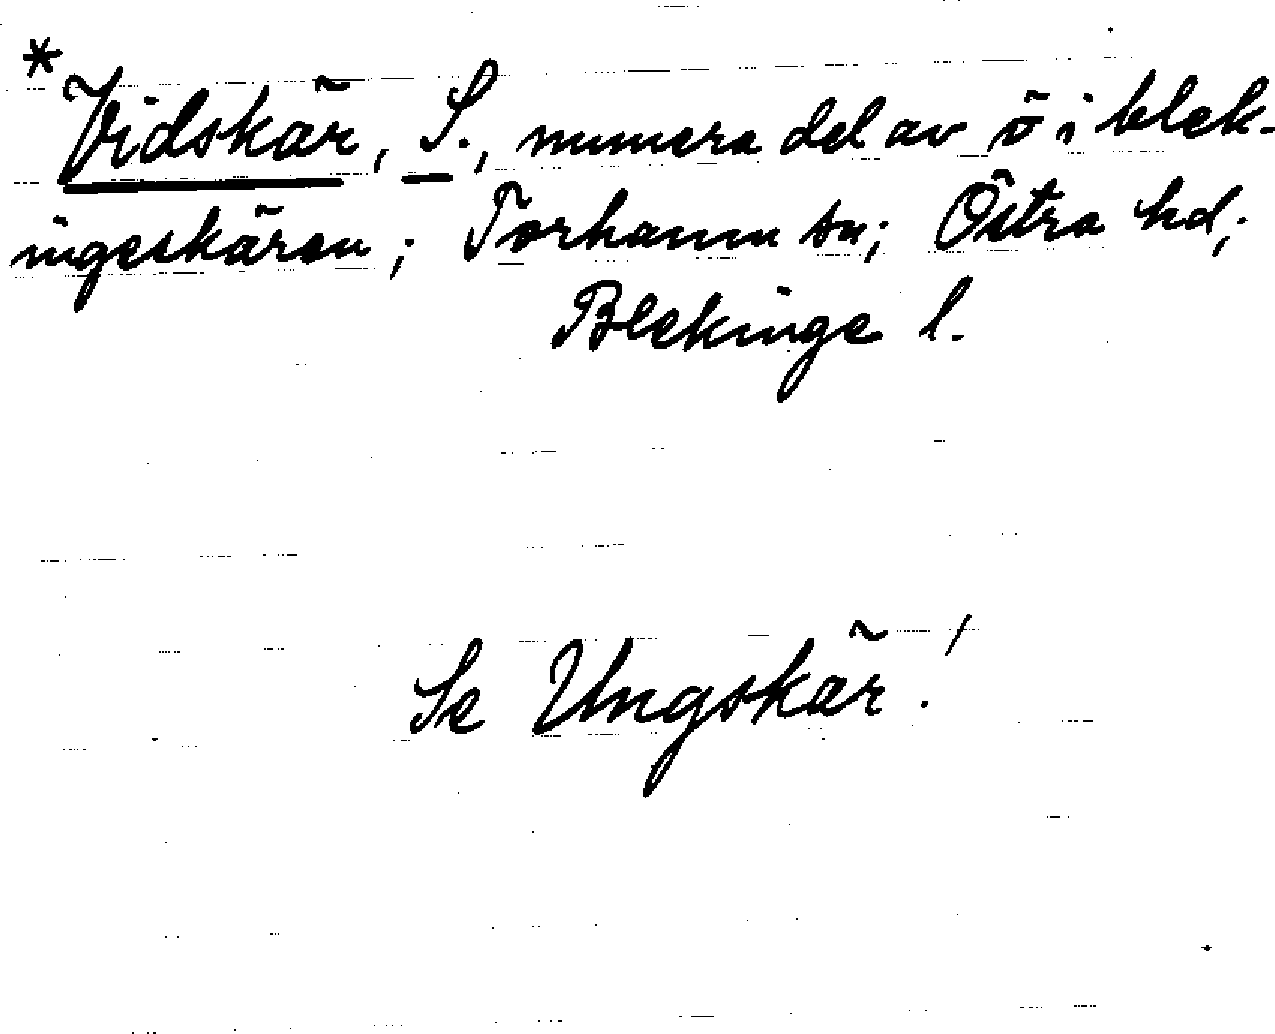 * Vidskär, S., numera del av ö i blek-
ingeskären; Torhamn sn; Östra hd;
Blekinge l.
Se Ungskär!